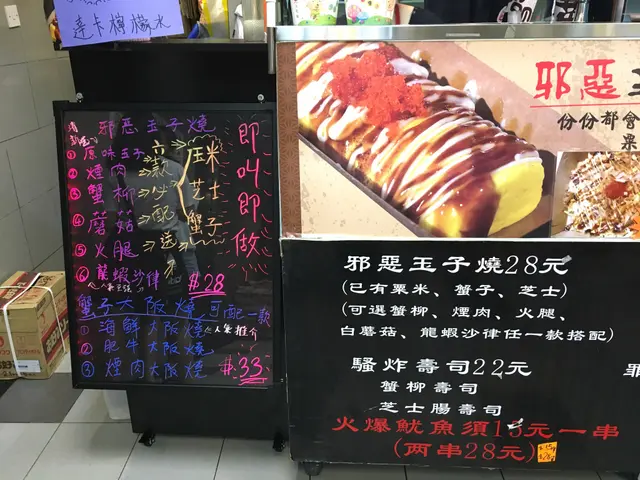 達卡檸檬水
邪惡玉子燒
① 原味玉子
② 煙肉
③ 蟹柳
④ 蘑菇
⑤ 火腿
⑥ 龍蝦沙律
$28
粟米
芝士
蟹子
即叫即做
蟹子大阪燒 可配一款
① 海鮮大阪燒 人氣推介
② 肥牛大阪燒
③ 煙肉大阪燒
$33
邪惡玉
份份都會
邪惡玉子燒28元
(已有粟米、蟹子、芝士)
(可選蟹柳、煙肉、火腿、
白蘑菇、龍蝦沙律任一款搭配)
騷炸壽司22元
蟹柳壽司
芝士腸壽司
火爆魷魚須15元一串
(两串28元)